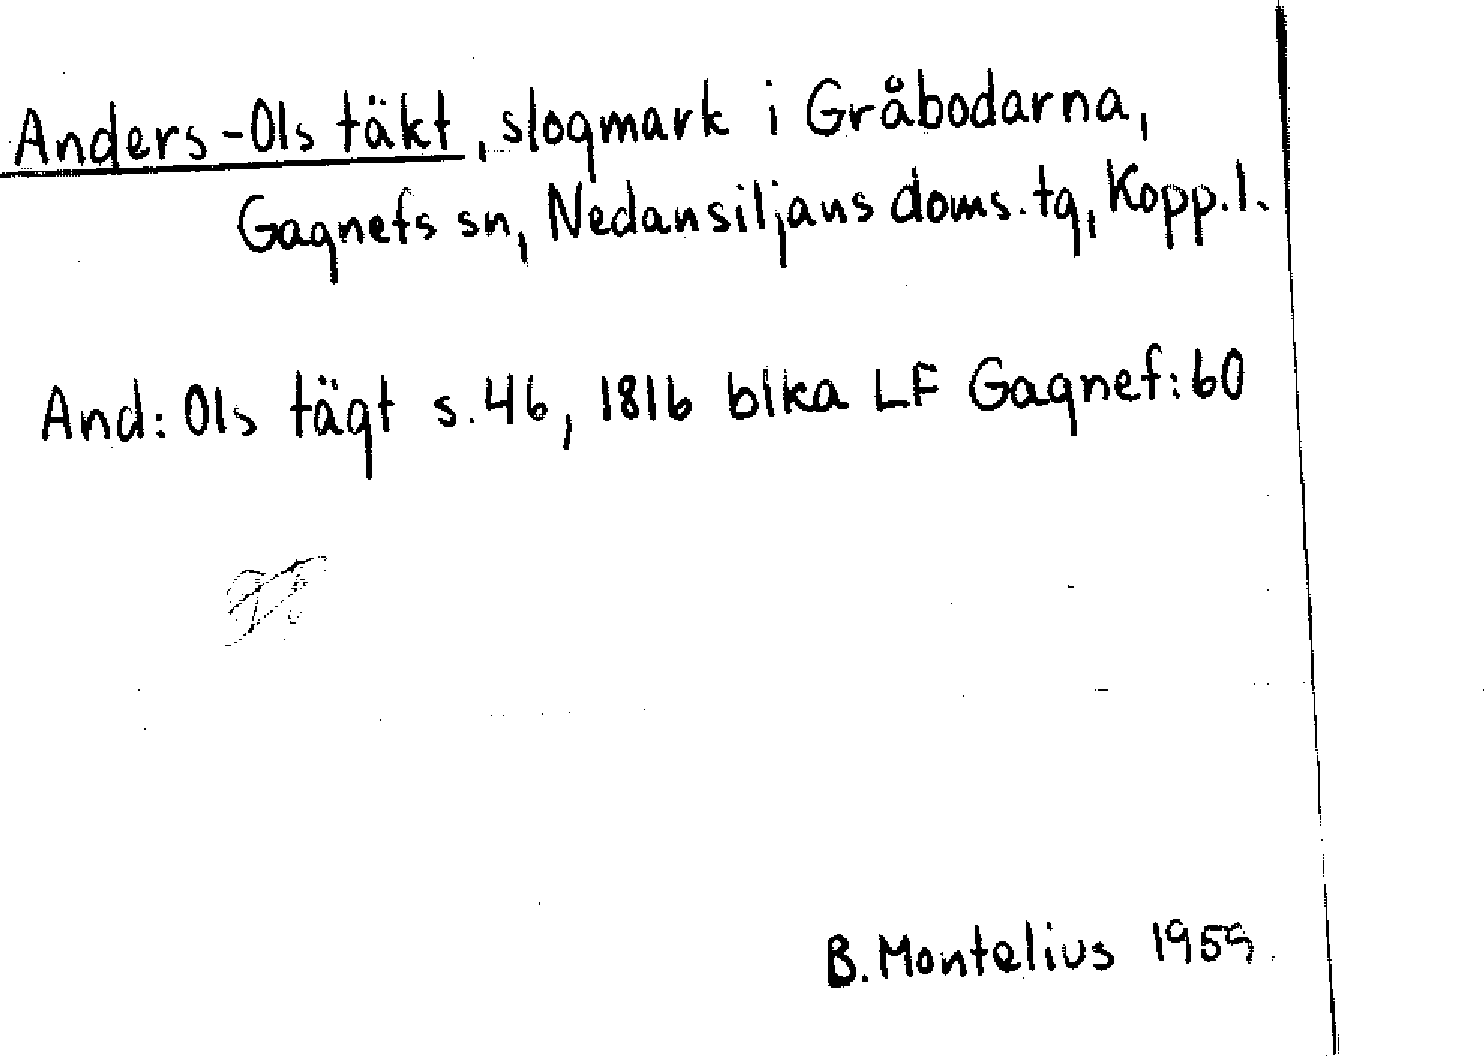 Anders-Ols täkt, slogmark i Gråbodarna,
Gagnefs sn, Nedansiljans doms. tg, Kopp. l.
And: Ols tägt s. 46, 1816 blka LF Gagnef: 60
B. Montelius 1959